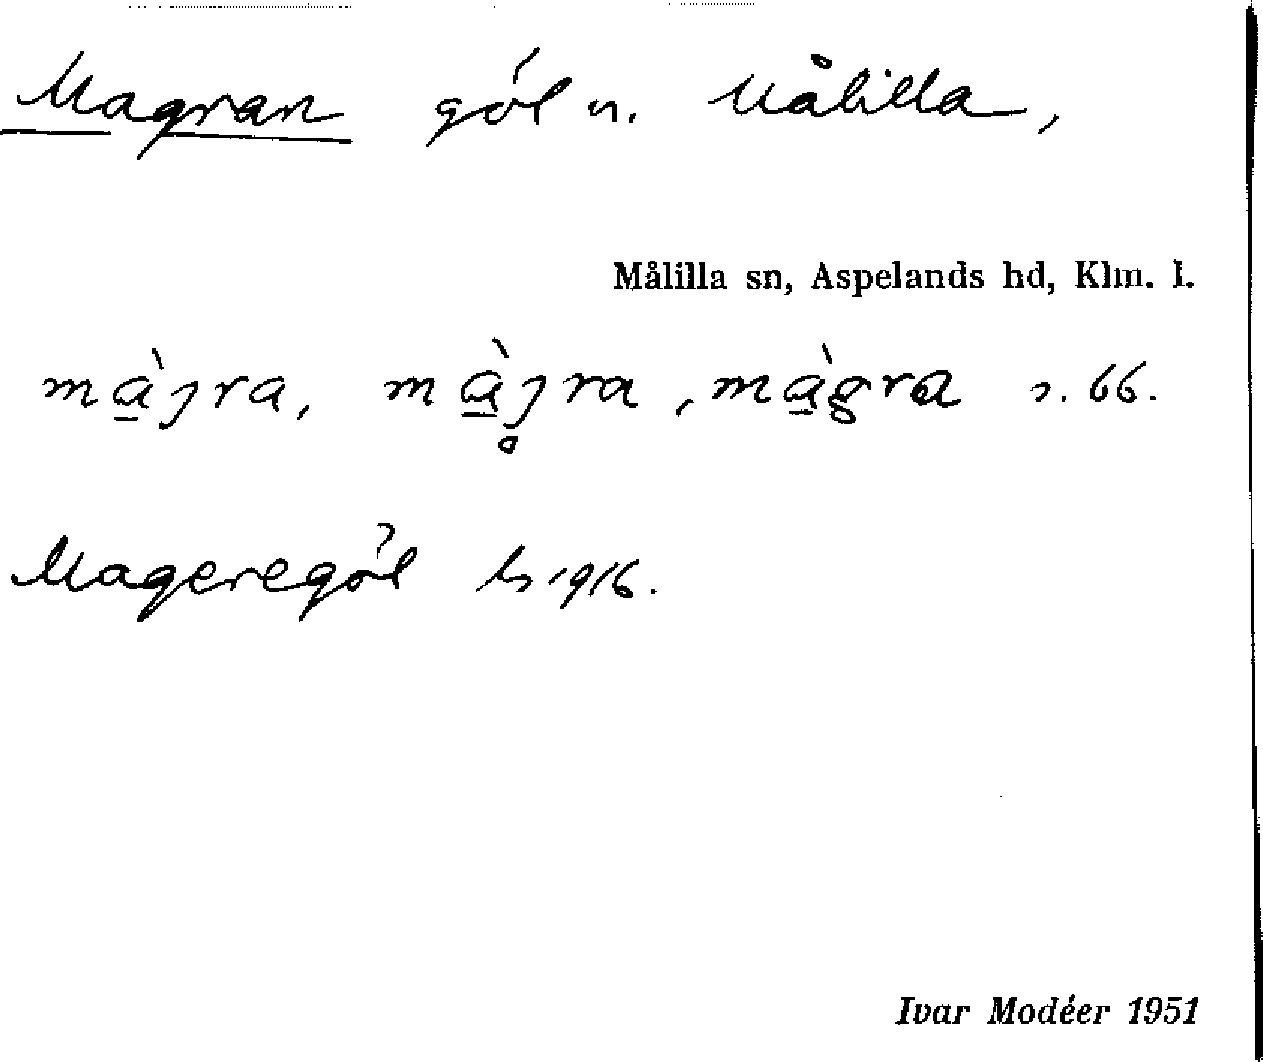 Magran göl n. Målilla,
Målilla sn, Aspelands hd, Klm. l.
mà̱jra, mà̱j̥ra, mà̱gra s. 66.
Mageregöl ls 1916.
Ivar Modéer 1951